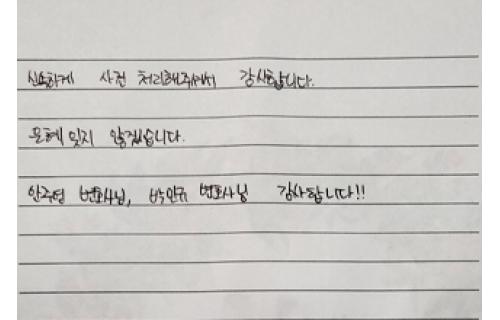 신속하게 사건 처리해주셔서 감사합니다.
은혜 잊지 않겠습니다.
안주영 변호사님, 박민규 변호사님 감사합니다!!